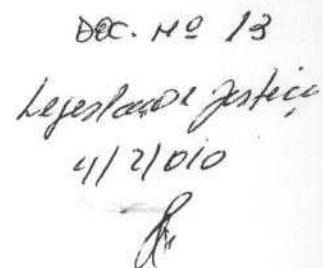 DOC. Nº 13
Legislação e Justiça
4/2/010